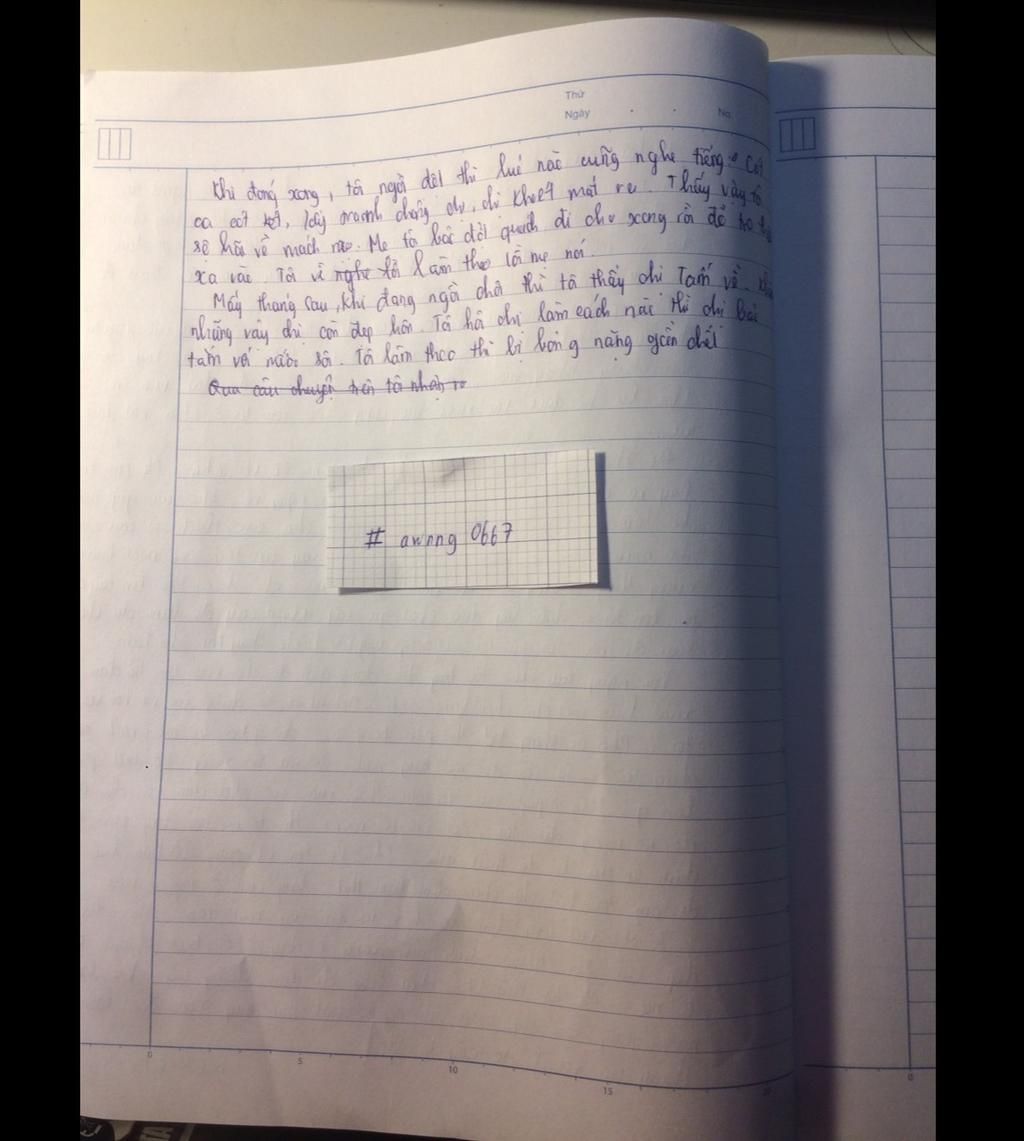 Thứ
Ngày
No.
Khi đóng xong, tôi ngồi dệt thì lúc nào cũng nghe tiếng
ca cót két, lấy tranh chồng chị, chị khoét mắt ra. Thấy vậy tô
sợ hãi về mách mẹ. Mẹ tô bảo đốt quách đi cho xong rồi đổ tro
xa vào. Tôi vì nghe lời làm theo lời mẹ nói.
Mấy tháng sau, khi đang ngồi chơi thì tô thấy chị Tấm về.
những vậy chị còn đẹp hơn. Tô hỏi chị làm cách nào thì chị bảo
tắm với nước sôi. Tô làm theo thì bị bỏng nặng gần chết
Qua câu chuyện trên tôi nhận ra
# awnng 0667
0
5
10
15
20
0